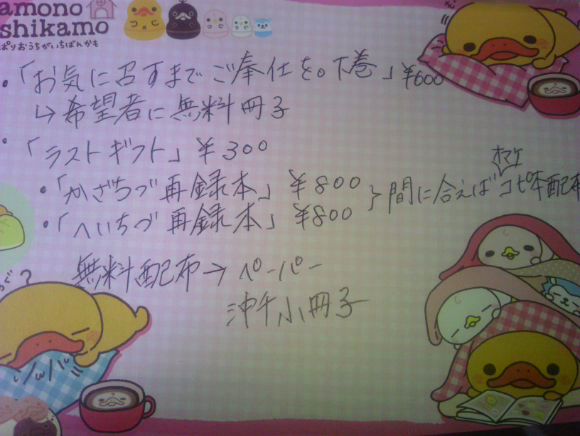 amono
shikamo
ぽりおうちがいちばんかも
・「お気に召すまでご奉仕を。下巻」¥600
↳希望者に無料冊子
・「ラストギフト」¥300
・「かざちづ再録本」¥800
・「へいちづ再録本」¥800
} 間に合えばコピ本配布
オマケ
無料配布→ペーパー
沖千小冊子